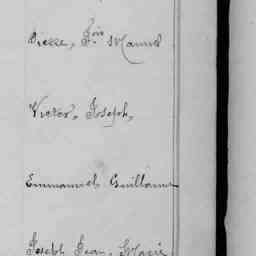 Pierre, Fois Manuel
Victor, Joseph,
Emmanuel Guillaume
Joseph Jean, Marie